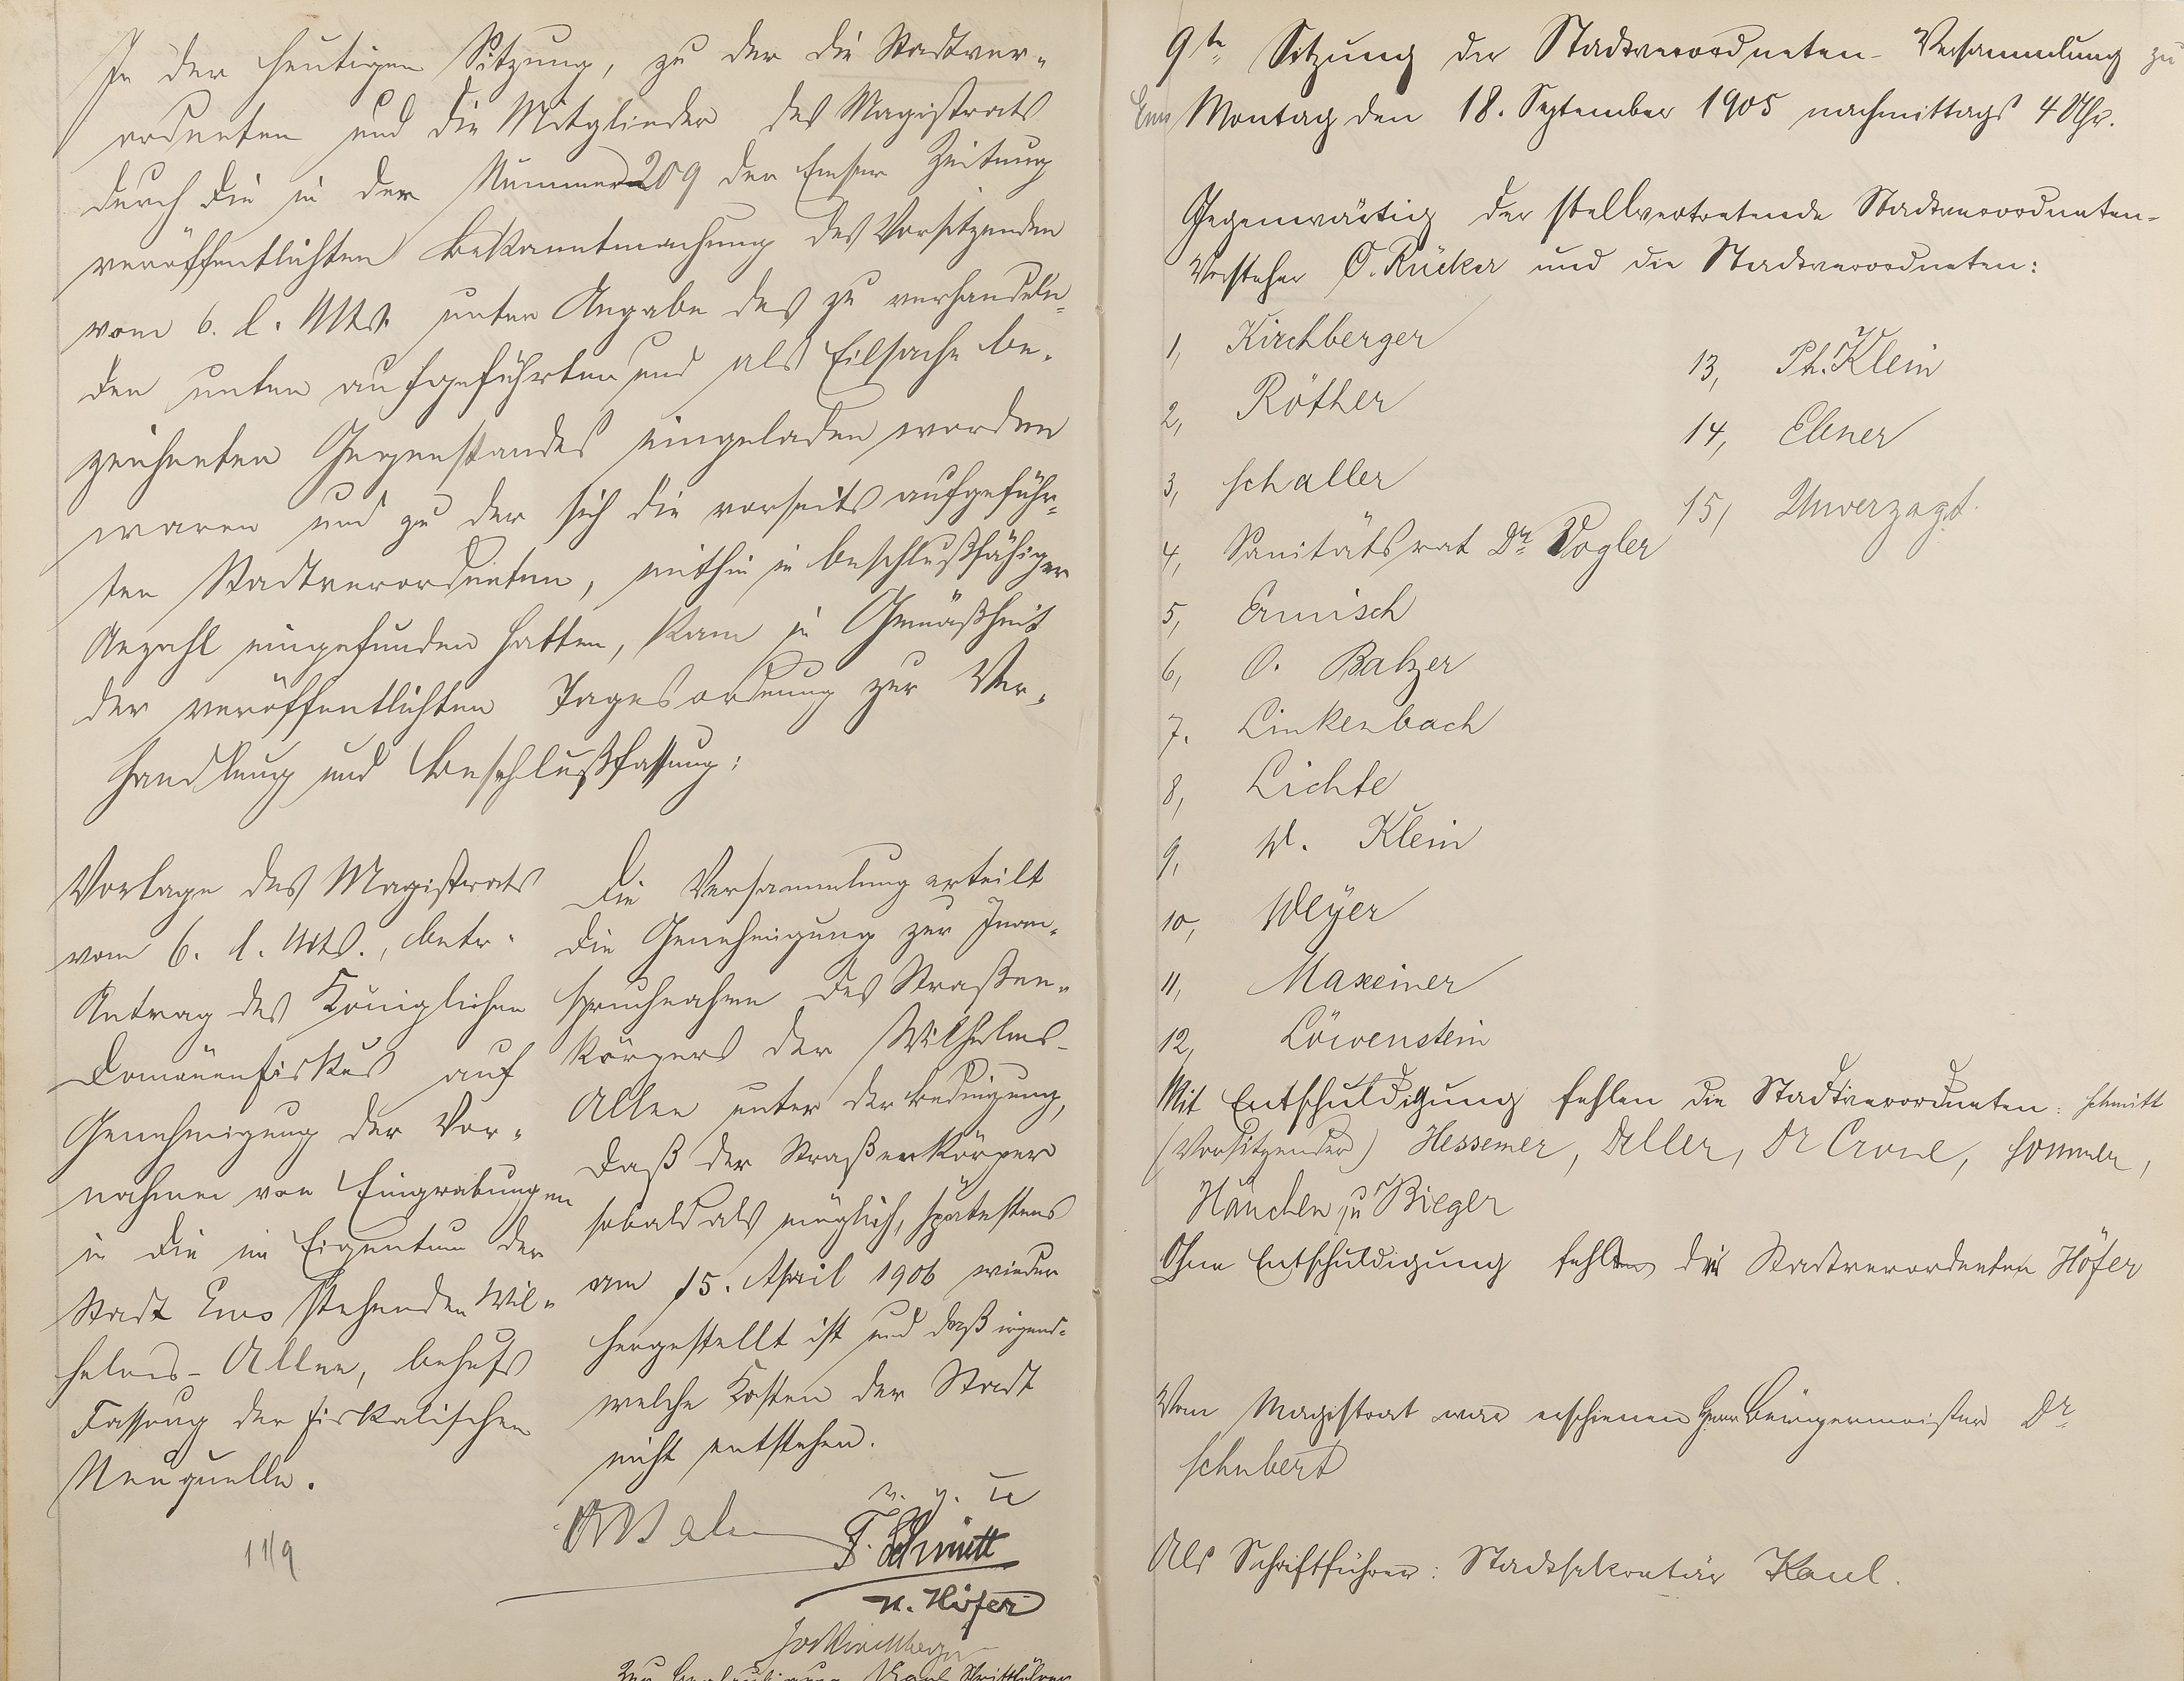 In der heutigen Sitzung, zu der die Stadtver-
ordneten und die Mitglieder des Magistrats
durch die in der Nummer 209 der Emser Zeitung
veröffentlichten Bekanntmachung des Vorsitzenden
vom 6. l. Mts. unter Angabe des zu verhandeln-
den unten aufgeführten und als Eilsache be-
zeichneten Gegenstandes eingeladen worden
waren und zu der sich die vorseits aufgeführ-
ten Stadtverordneten, mithin in beschlußfähiger
Anzahl eingefunden hatten, kam in Gemäßheit
der veröffentlichten Tagesordnung zur Ver-
handlung und Beschlußfassung:
Vorlage des Magistrats
vom 6. l. Mts., betr.
Antrag des Königlichen
Domänenfiskus auf
Genehmigung der Vor-
nahme von Eingrabungen
in die im Eigentum der
Stadt Ems stehenden Wil-
helms-Allee, behufs
Fassung der fiskalischen
Neuquelle.
11/9
Die Versammlung erteilt
die Genehmigung zur Inan-
spruchnahme des Straßen-
körpers der Wilhelms-
Allee unter der Bedingung,
daß der Straßenkörper
sobald als möglich, spätestens
am 15. April 1906 wieder
hergestellt ist und daß irgend-
welche Kosten der Stadt
nicht entstehen.
v. g. u
F. Schmitt
N. Höfer
Jos Kirchberger
Zur Beglaubigung Kaul Schriftführer
9te Sitzung der Stadtverordneten-Versammlung zu
Ems Montag den 18. September 1905 nachmittags 4 Uhr.
Gegenwärtig der stellvertretende Stadtverordneten-
Vorsteher O. Rücker und die Stadtverordneten:
1, Kirchberger
2, Röther
3, Schaller
4, Sanitätsrat Dr. Vogler
5, Ermisch
6, O. Balzer
7. Linkenbach
8, Lichte
9, W. Klein
10, Weyer
11, Maxeiner
12, Löwenstein
13, Ph. Klein
14, Ebner
15, Unverzagt.
Mit Entschuldigung fehlen die Stadtverordneten: Schmitt
(Vorsitzender) Hessemer, Deller, Dr Crone, Sommer,
Hänchen u Bieger
Ohne Entschuldigung fehlt der Stadtverordneten Höfer
Vom Magistrat war erschienen Herr Bürgermeister Dr.
Schubert
Als Schriftführer: Stadtsekretär Kaul.